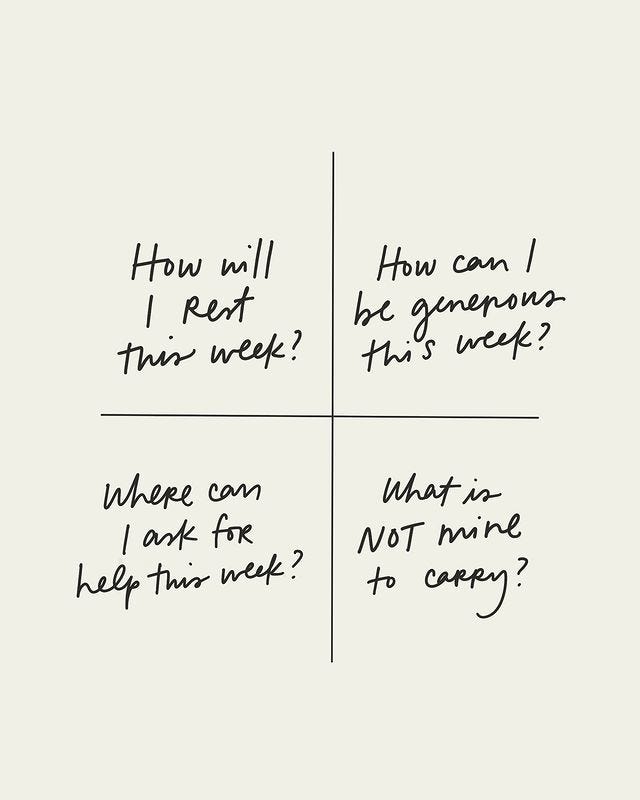 How will
I Rest
this week?
How can I
be generous
this week?
Where can
I ask for
help this week?
What is
NOT mine
to carry?